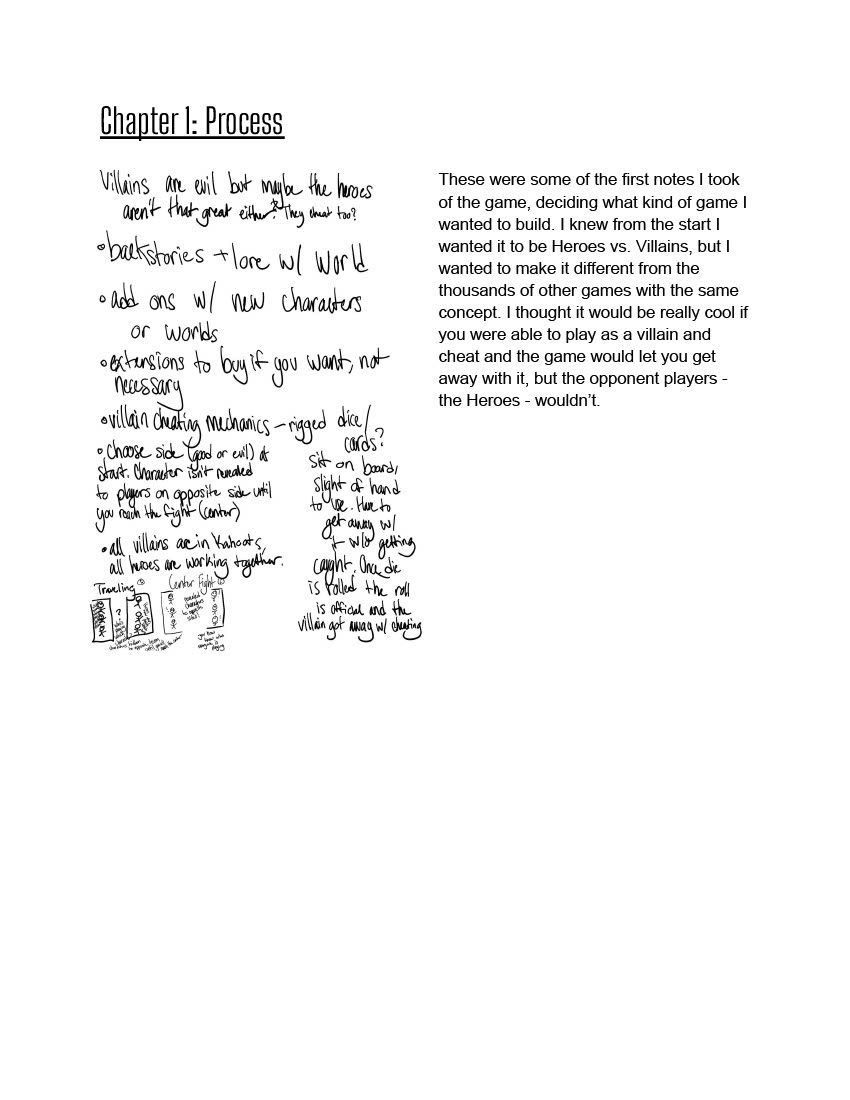 Chapter 1: Process
Villains are evil but maybe the heroes
aren't that great either? They cheat too?
• backstories + lore w/ world
• add ons w/ new characters
or worlds
• extensions to buy if you want, not
necessary
• villain cheating mechanics - rigged dice/
cards?
sit on board,
slight of hand
to use. Have to
get away w/
it w/o getting
caught. Once die
is rolled the roll
is official and the
villain got away w/ cheating
• Choose side (good or evil) at
start. Character isn't revealed
to players on opposite side until
you reach the fight (center)
• all villains are in Kahoots,
all heroes are working together.
Traveling
?
Center Fight
These were some of the first notes I took
of the game, deciding what kind of game I
wanted to build. I knew from the start I
wanted it to be Heroes vs. Villains, but I
wanted to make it different from the
thousands of other games with the same
concept. I thought it would be really cool if
you were able to play as a villain and
cheat and the game would let you get
away with it, but the opponent players -
the Heroes - wouldn't.